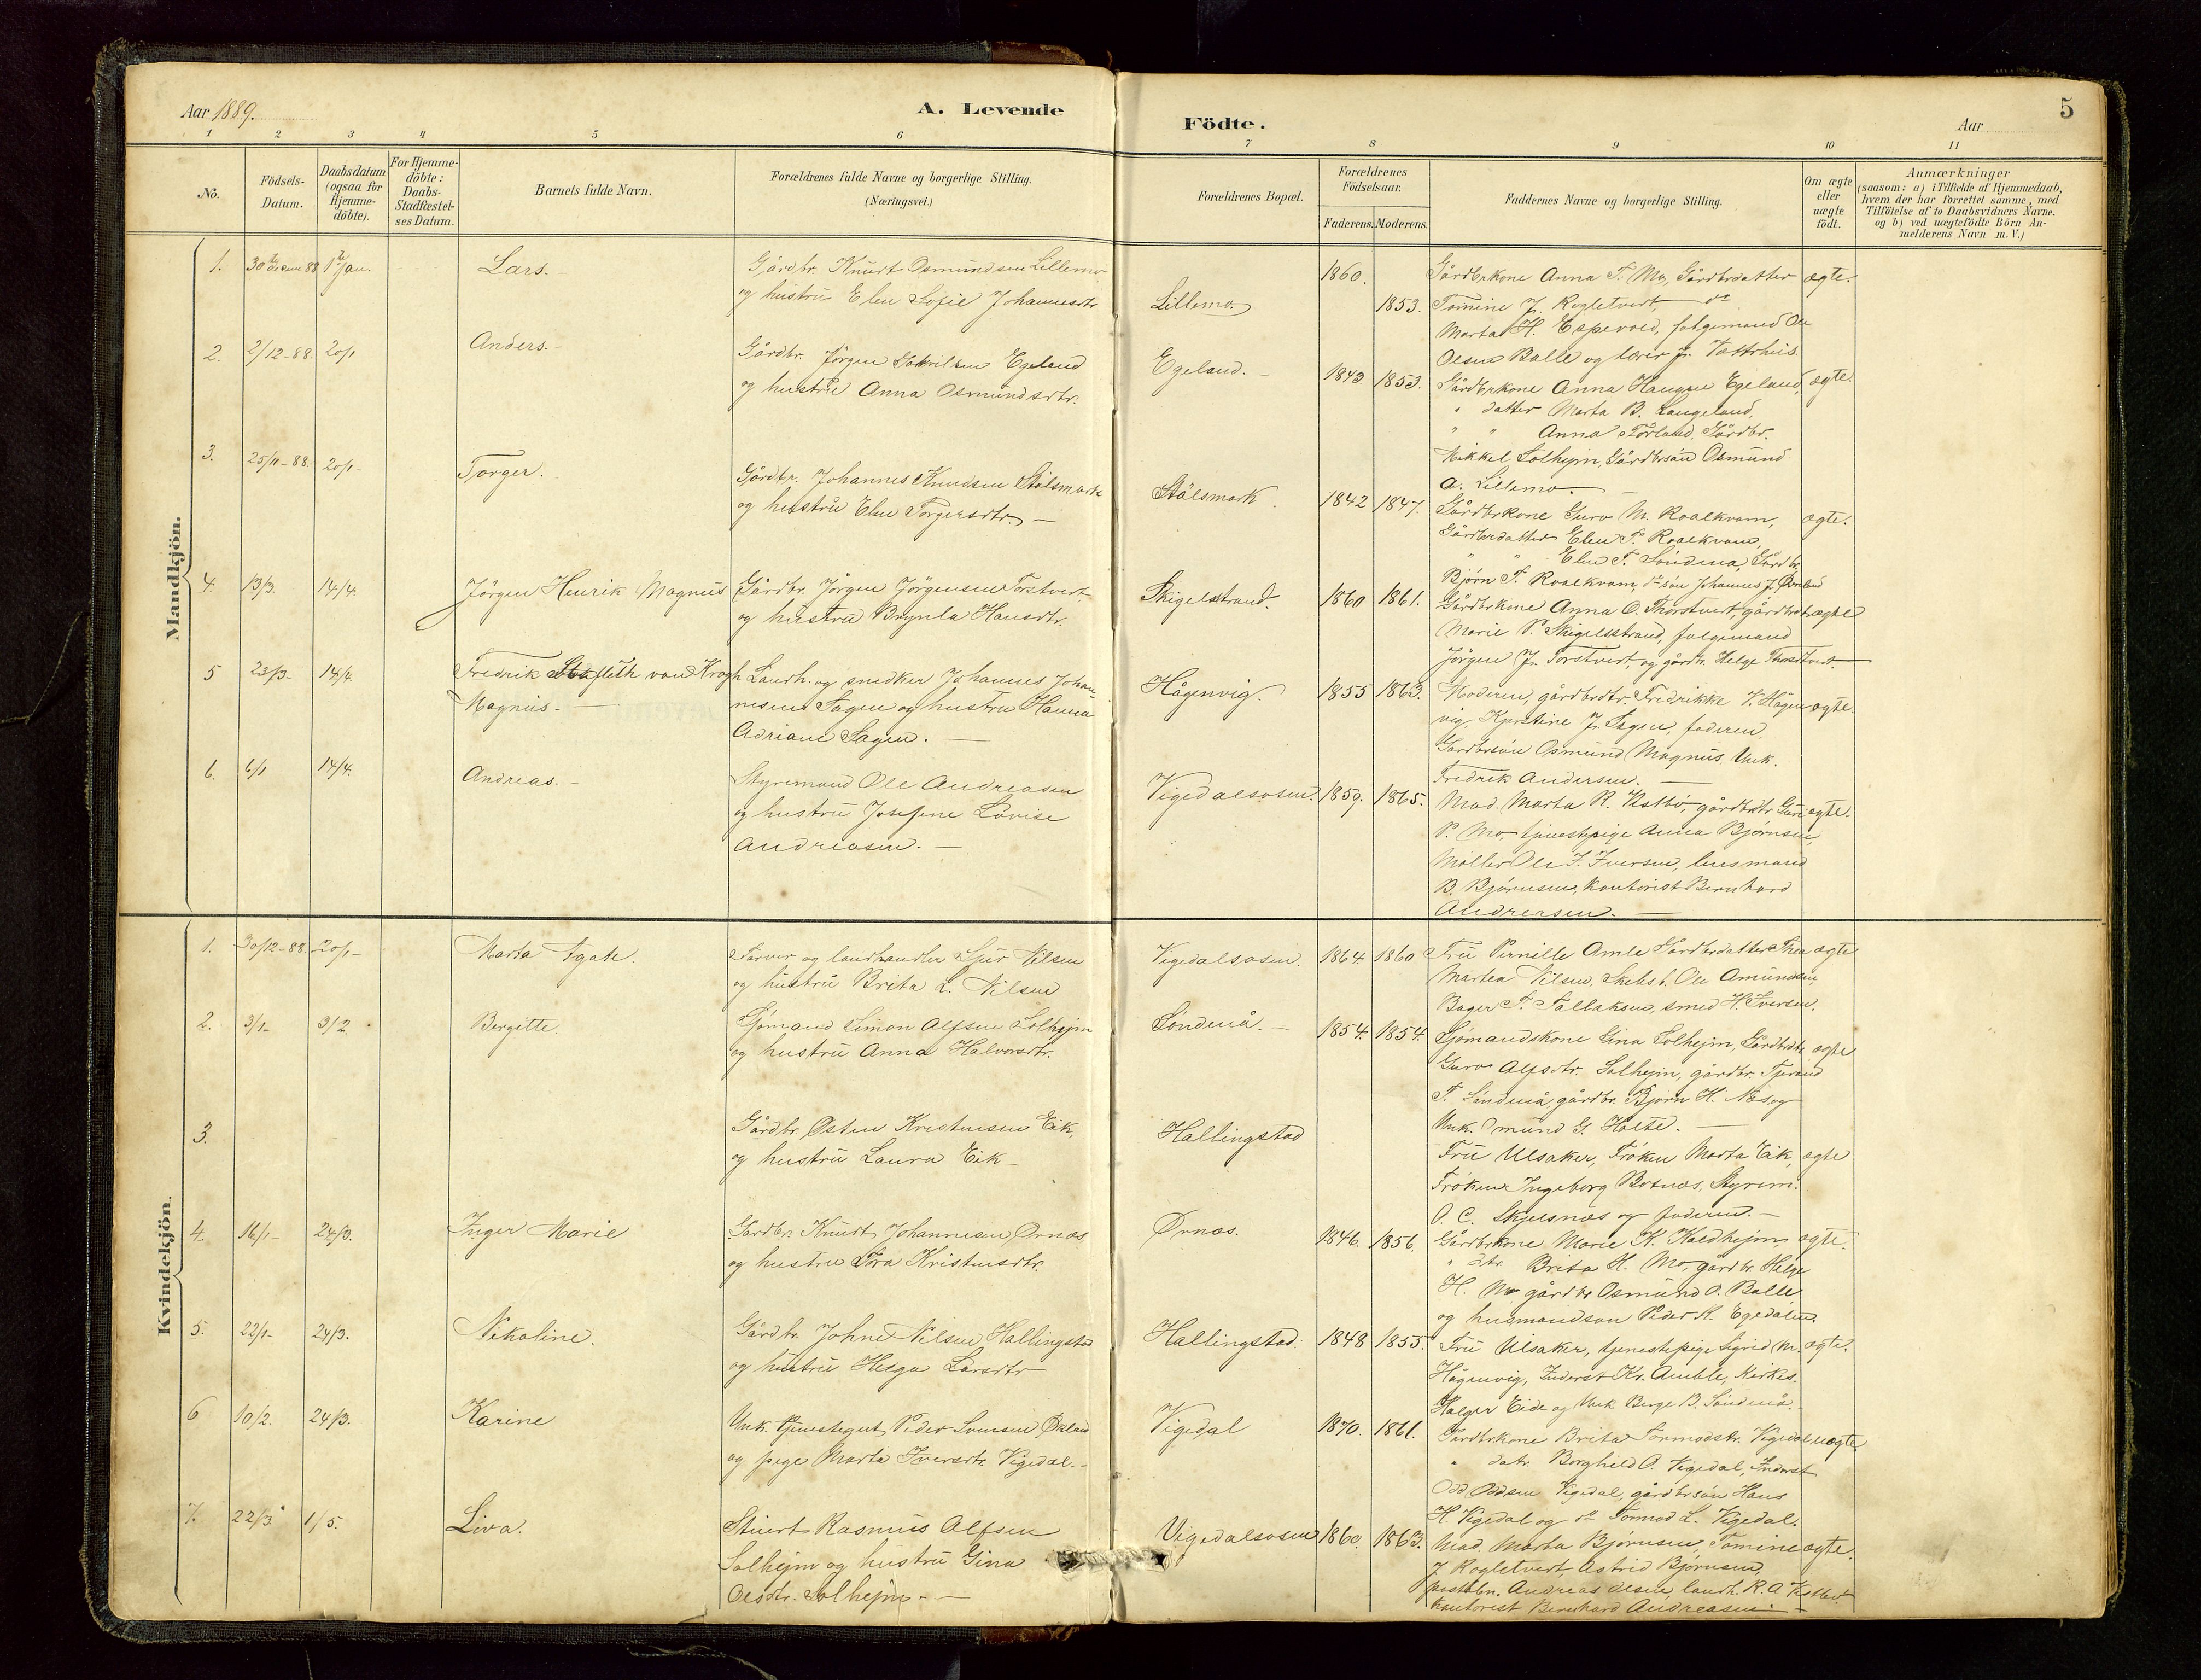 Aar 1889.
A. Levende
Födte.
Aar
5
1 2 3 4 5 6 7 8 9 10 11
No.
Födsels-Datum.
Daabsdatum (ogsaa for Hjemme-döbte).
For Hjemme-döbte: Daabs-Stadfæstel-ses Datum.
Barnets fulde Navn.
Forældrenes fulde Navne og borgerlige Stilling. (Næringsvei.)
Forældrenes Bopæl.
Forældrenes Födselsaar.
Faderens. Moderens.
Faddernes Navne og borgerlige Stilling.
Om ægte eller uægte födt.
Anmærkninger
(saasom: a) i Tilfælde af Hjemmedaab,
hvem der har forrettet samme, med
Tilföielse af to Daabsvidners Navne,
og b) ved uægtefödte Börn An-
melderens Navn m. V.)
Mandkjön.
1. 30 88 1 Jan. Lars.-
Gårdbr. Knut Osmundsen Lillemo
og hustru Elen Sofie Johannesdtr
Lillemo. 1860. 1853.
Gårdbrkone Anna T. Mo, Gårdbrdatter ægte.
Tomine J. Rogletvert, do
Marta H. Espevold, folgemand Ole
Olsen Balle og lærer J. Vættrhus.
2. 2/12-88. 20/1 Anders.-
Gårdbr. Jörgen Egeland
og hustru Anna Osmundsdtr.
Egeland.- 1843. 1853.
Gårdbrkone Anna Egeland, ægte.
" datter Marta B. Langeland,
" " Anna Gårdbr.
Mikkel Solhejm, Gårdbrsön Osmund
A. Lillemo.-
3. 25/11-88. 20/1- Torger.
Gårdbr. Johannes Knudsen Stålsmark
og hustru Elen Torgersdtr.-
Stålsmark. 1842 1847.
Gårdbrkone Guro M. Roalkvam, ægte.
Gårdbrdatter Elen T. Roalkvam,
" " Elen T. Söndenå, Gårdbr.
Björn T. Roalkvam, do sön Johannes J.
4. 13/3. 14/4. Jörgen Henrik Magnus
Gårdbr. Jörgen Jörgensen Torstvert
og hustru Brynla Hansdtr.
Skigelstrand. 1860 1861.
Gårdbrkone Anna O. Thorstvert, gårdbrdtr ægte
Marie P. Skigelsstrand, folgemand
Jörgen J. Torstvert, og gårdbr. Helge
5 23/3- 14/4. Fredrik von Krogh
Magnus.-
Landh. og snedker Johannes Johan-
nesen Sagen og hustru Hanna
Adriane Sagen.-
Hågenvig. 1855 1863.
Moderen, gårdbrdtr. Fredrikke V. Hågen- ægte.
vig, Kjerstine J. Sagen, faderen,
Gårdbrsön Osmund Magnus Unk.
Fredrik Andersen.-
6. 6/1 14/4. Andreas.-
Styremand Ole Andreasen
og hustru Josefine Lovise
Andreasen.-
Vigedalsosen. 1859. 1865.
Mad. Marta R. Vestbö, gårdbrdtr. Guri ægte.
P. Mo, tjenestepige Anna Björnsen,
Möller Ole F. Iversen, lensmand
B. Björnsen, Kontorist Bernhard
Andreasen.-
Kvindekjön.
1. 30/12-88. 20/1- Marta Agate.
Farver og landhandler Sjur Nilsen
og hustru Brita L. Nilsen
Vigedalsosen. 1864. 1860
Fru Pernille Amle Gårdbrdatter Thea ægte
Martea Nilsen, Skebsb. Ole Amundsen,
Bager T. Tallaksen, smed H. Iversen.
2. 3/1- 3/2. Bergitte.
Sjömand Simon Alfsen Solhejm
og hustru Anna Halvorsdtr.
Söndenå.- 1854. 1854.
Sjömandskone Gina Solhejm, Gårdbrdtr. ægte
Guro Alfsdtr. Solhejm, gårdbr.
T. Söndenå, gårdbr. Björn H. Næs og
Unk. Omund G. Holte.-
3.
Gårdbr. Östen Kristensen Eik,
og hustru Laura Eik-
Hallingstad
Fru Ulsaker, Fröken Marta Eik, ægte
Fröken Ingeborg Botnæs, Styrem.
O. C. Skjelsnæs og faderen.-
4. 16/1- 24/3. Inger Marie
Gårdbr. Knudt Johannesen Ørnæs
og hustru Tora Kristensdtr.
Ørnæs. 1846. 1856.
Gårdbrkone Marie K. Haldhejm, ægte.
" dtr. Brita H. Mo, gårdbr. Helge
H. Mo gårdbr Osmund O. Balle
og husmandsön Peder R. Egedalen.
5. 22/1- 24/3. Nikoline.
Gårdbr. Johne Nilsen Hallingstad
og hustru Helga Larsdtr
Hallingstad. 1848 1855.
Fru Ulsaker, tjenestepige Sigrid M. ægte.
Hågenvig, Inderst Kr. Amble, Kirkes.
Holger Eide og Unk Berge B. Söndenå.
6 10/2. 24/3. Karine
Unk. tjenestegut Peder Svensen Økland
og pige Marta Iversdtr. Vigedal.-
Vigedal 1870. 1861.
Gårdbrkone Brita Tormodsdtr. Vigedal uægte
" datr. Borghild O. Vigedal, Inderst
Odd Oddsen Vigedal, gårdbrsön Hans
H. Vigedal og do Tormod L. Vigedal.
7. 22/3 1/5. Liva.
Stuert Rasmus Alfsen
Solhejm og hustru Gina
Olsdtr. Solhejm.-
Vigedalsosen 1860. 1863.
Mad. Marta Björnsen, Tomine ægte.
J Rogletvert, Astrid Björnsen,
postabn. Andreas Olsen landh. R. A Vestbö.
Kontorist Bernhard Andreasen.-